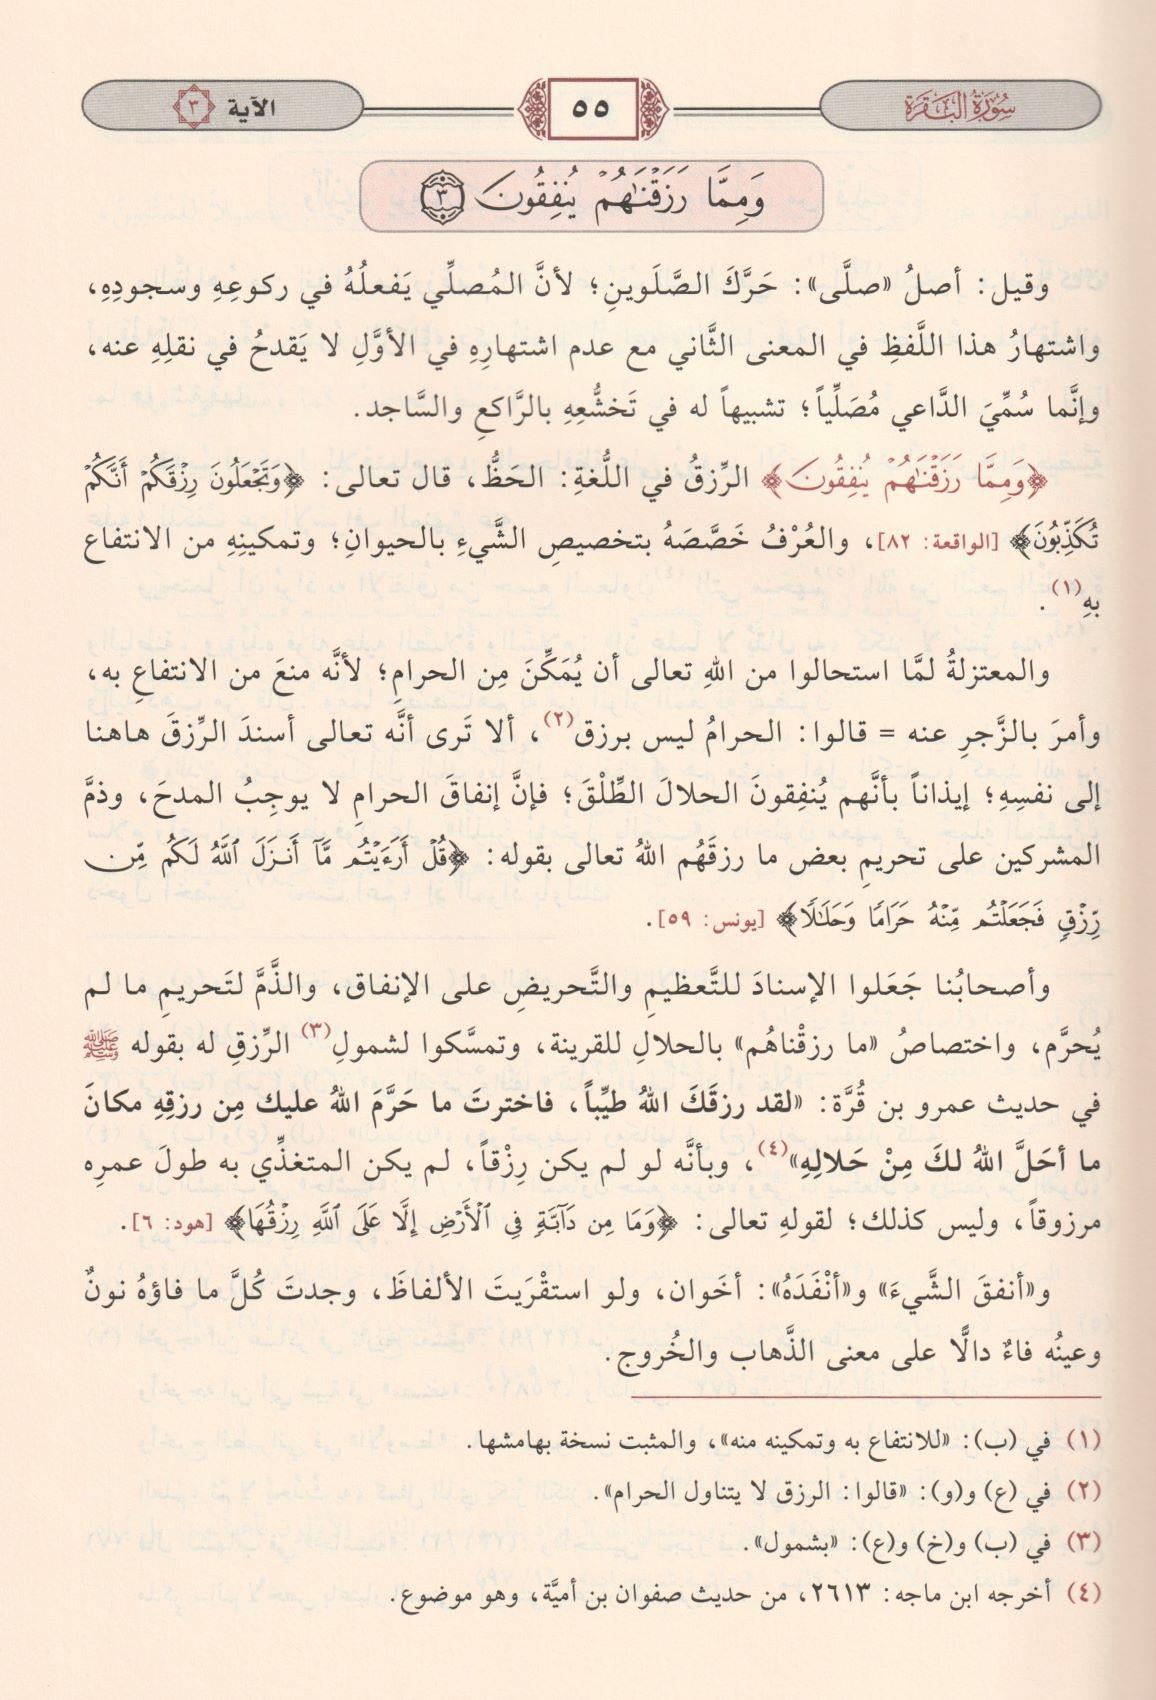 سُورَةُ البَقَرَةِ
٥٥
الآية ٣
وَمِمَّا رَزَقْنَٰهُمْ يُنفِقُونَ ٣
وقيل: أصلُ «صلَّى»: حَرَّكَ الصَّلَوينِ؛ لأنَّ المُصلِّي يَفعلُهُ في ركوعِهِ وسجودِهِ،
واشتهارُ هذا اللَّفظِ في المعنى الثَّاني مع عدم اشتهارِهِ في الأوَّلِ لا يَقدحُ في نقلِهِ عنه،
وإنَّما سُمِّيَ الدَّاعي مُصَلِّياً؛ تشبيهاً له في تَخشُّعِهِ بالرَّاكعِ والسَّاجد.
﴿وَمِمَّا رَزَقْنَٰهُمْ يُنفِقُونَ﴾ الرِّزقُ في اللُّغةِ: الحَظُّ، قال تعالى: ﴿وَتَجْعَلُونَ رِزْقَكُمْ أَنَّكُمْ
تُكَذِّبُونَ﴾ [الواقعة: ٨٢]، والعُرْفُ خَصَّصَهُ بتخصيصِ الشَّيءِ بالحيوانِ؛ وتمكينِهِ من الانتفاع
بهِ(١).
والمعتزلةُ لمَّا استحالوا من اللهِ تعالى أن يُمَكِّنَ مِن الحرامِ؛ لأنَّه منعَ من الانتفاعِ به،
وأمرَ بالزَّجرِ عنه = قالوا: الحرامُ ليس برزق(٢)، ألا تَرى أنَّه تعالى أسندَ الرِّزقَ هاهنا
إلى نفسِهِ؛ إيذاناً بأنَّهم يُنفِقونَ الحلالَ الطِّلْقَ؛ فإنَّ إنفاقَ الحرامِ لا يوجِبُ المدحَ، وذمَّ
المشركين على تحريمِ بعض ما رزقَهُم اللهُ تعالى بقوله: ﴿قُلْ أَرَءَيْتُم مَّآ أَنزَلَ ٱللَّهُ لَكُم مِّن
رِّزْقٍ فَجَعَلْتُم مِّنْهُ حَرَامًا وَحَلَٰلًا﴾ [يونس: ٥٩].
وأصحابُنا جَعَلوا الإسنادَ للتَّعظيمِ والتَّحريضِ على الإنفاق، والذَّمَّ لتَحريمِ ما لم
يُحرَّم، واختصاصُ «ما رزقْناهُم» بالحلالِ للقرينة، وتمسَّكوا لشمولِ(٣) الرِّزقِ له بقوله ﷺ
في حديث عمرو بن قُرَّة: «لقد رزقَكَ اللهُ طيِّباً، فاخترتَ ما حَرَّمَ اللهُ عليك مِن رزقِهِ مكانَ
ما أحَلَّ اللهُ لكَ مِنْ حَلالِهِ»(٤)، وبأنَّه لو لم يكن رِزْقاً، لم يكن المتغذِّي به طولَ عمرِه
مرزوقاً، وليس كذلك؛ لقولهِ تعالى: ﴿وَمَا مِن دَآبَّةٍ فِي ٱلْأَرْضِ إِلَّا عَلَى ٱللَّهِ رِزْقُهَا﴾ [هود: ٦].
و«أنفقَ الشَّيءَ» و«أنْفَدَهُ»: أخَوان، ولو استقْرَيتَ الألفاظَ، وجدتَ كُلَّ ما فاؤهُ نونٌ
وعينُه فاءٌ دالًّا على معنى الذَّهاب والخُروج.
(١) في (ب): «للانتفاع به وتمكينه منه»، والمثبت نسخة بهامشها.
(٢) في (ع) و(و): «قالوا: الرزق لا يتناول الحرام».
(٣) في (ب) و(خ) و(ع): «بشمول».
(٤) أخرجه ابن ماجه: ٢٦١٣، من حديث صفوان بن أميَّة، وهو موضوع.